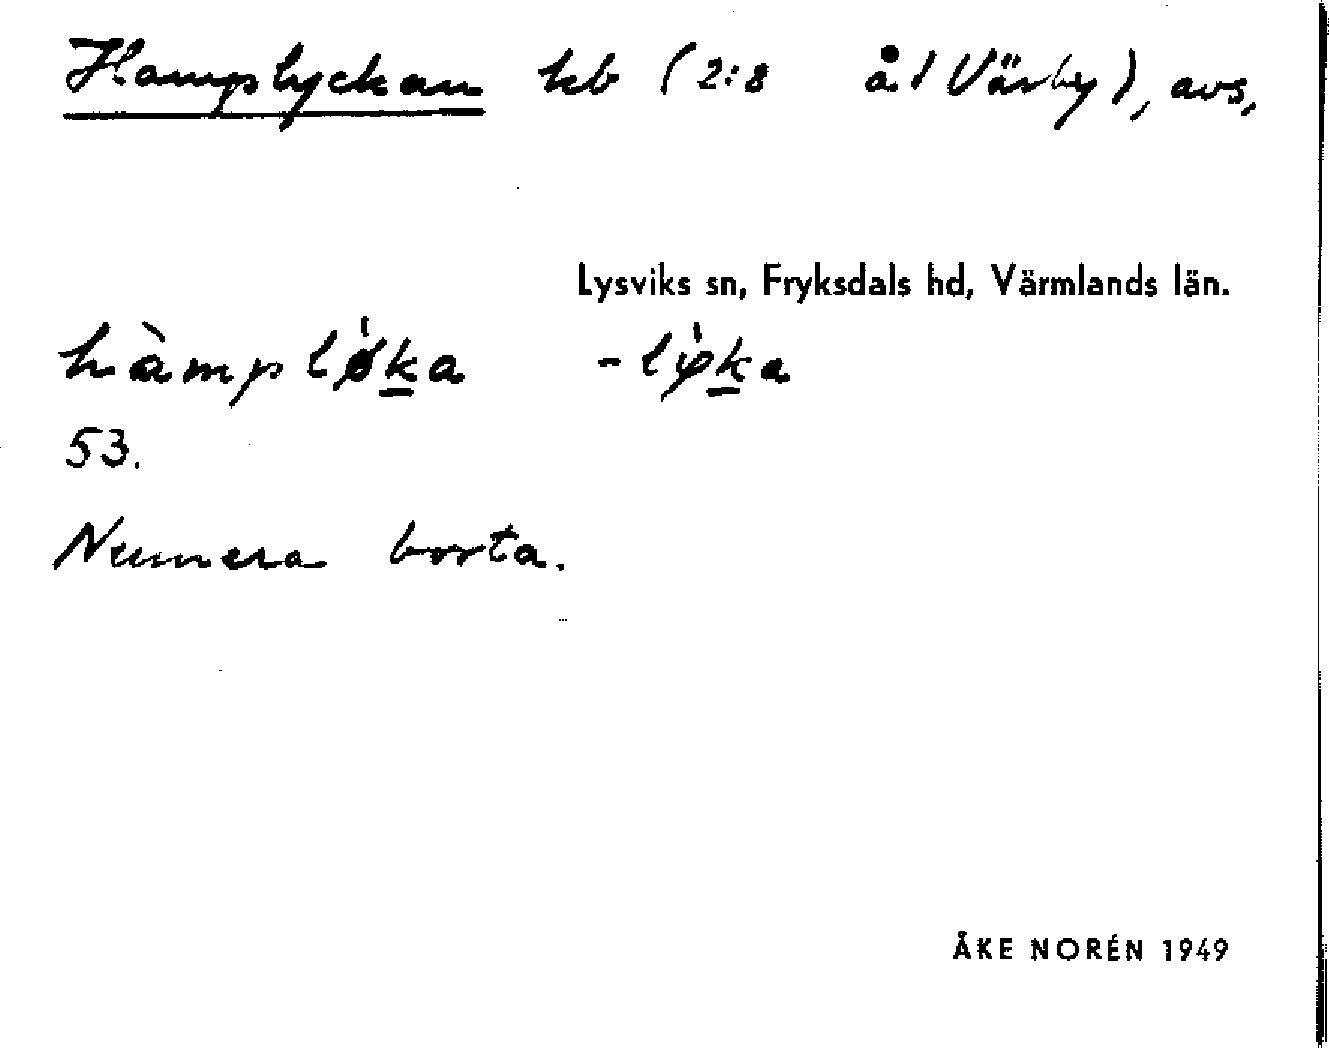 Hamplyckan hb (2:8 å/ Värby), avs,
Lysviks sn, Fryksdals hd, Värmlands län.
hàmplø̍k̲a -lø̍k̲a
53.
Numera borta.
ÅKE NORÉN 1949